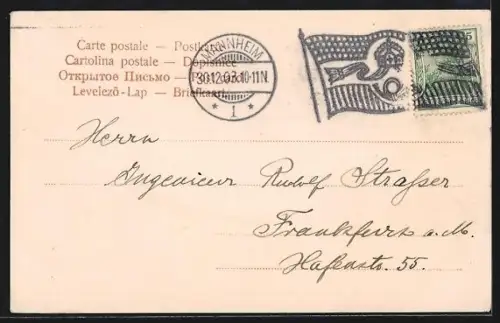 Carte postale — Postkarte
Cartolina postale — Dopisnice
Открытое Письмо —
Levelező-Lap — Briefkaart
MANNHEIM
30.12.03.10-11N.
* 1 *
5
Herrn
Ingenieur Rudolf Strasser
Frankfurt a. M.
Hafenstr. 55.